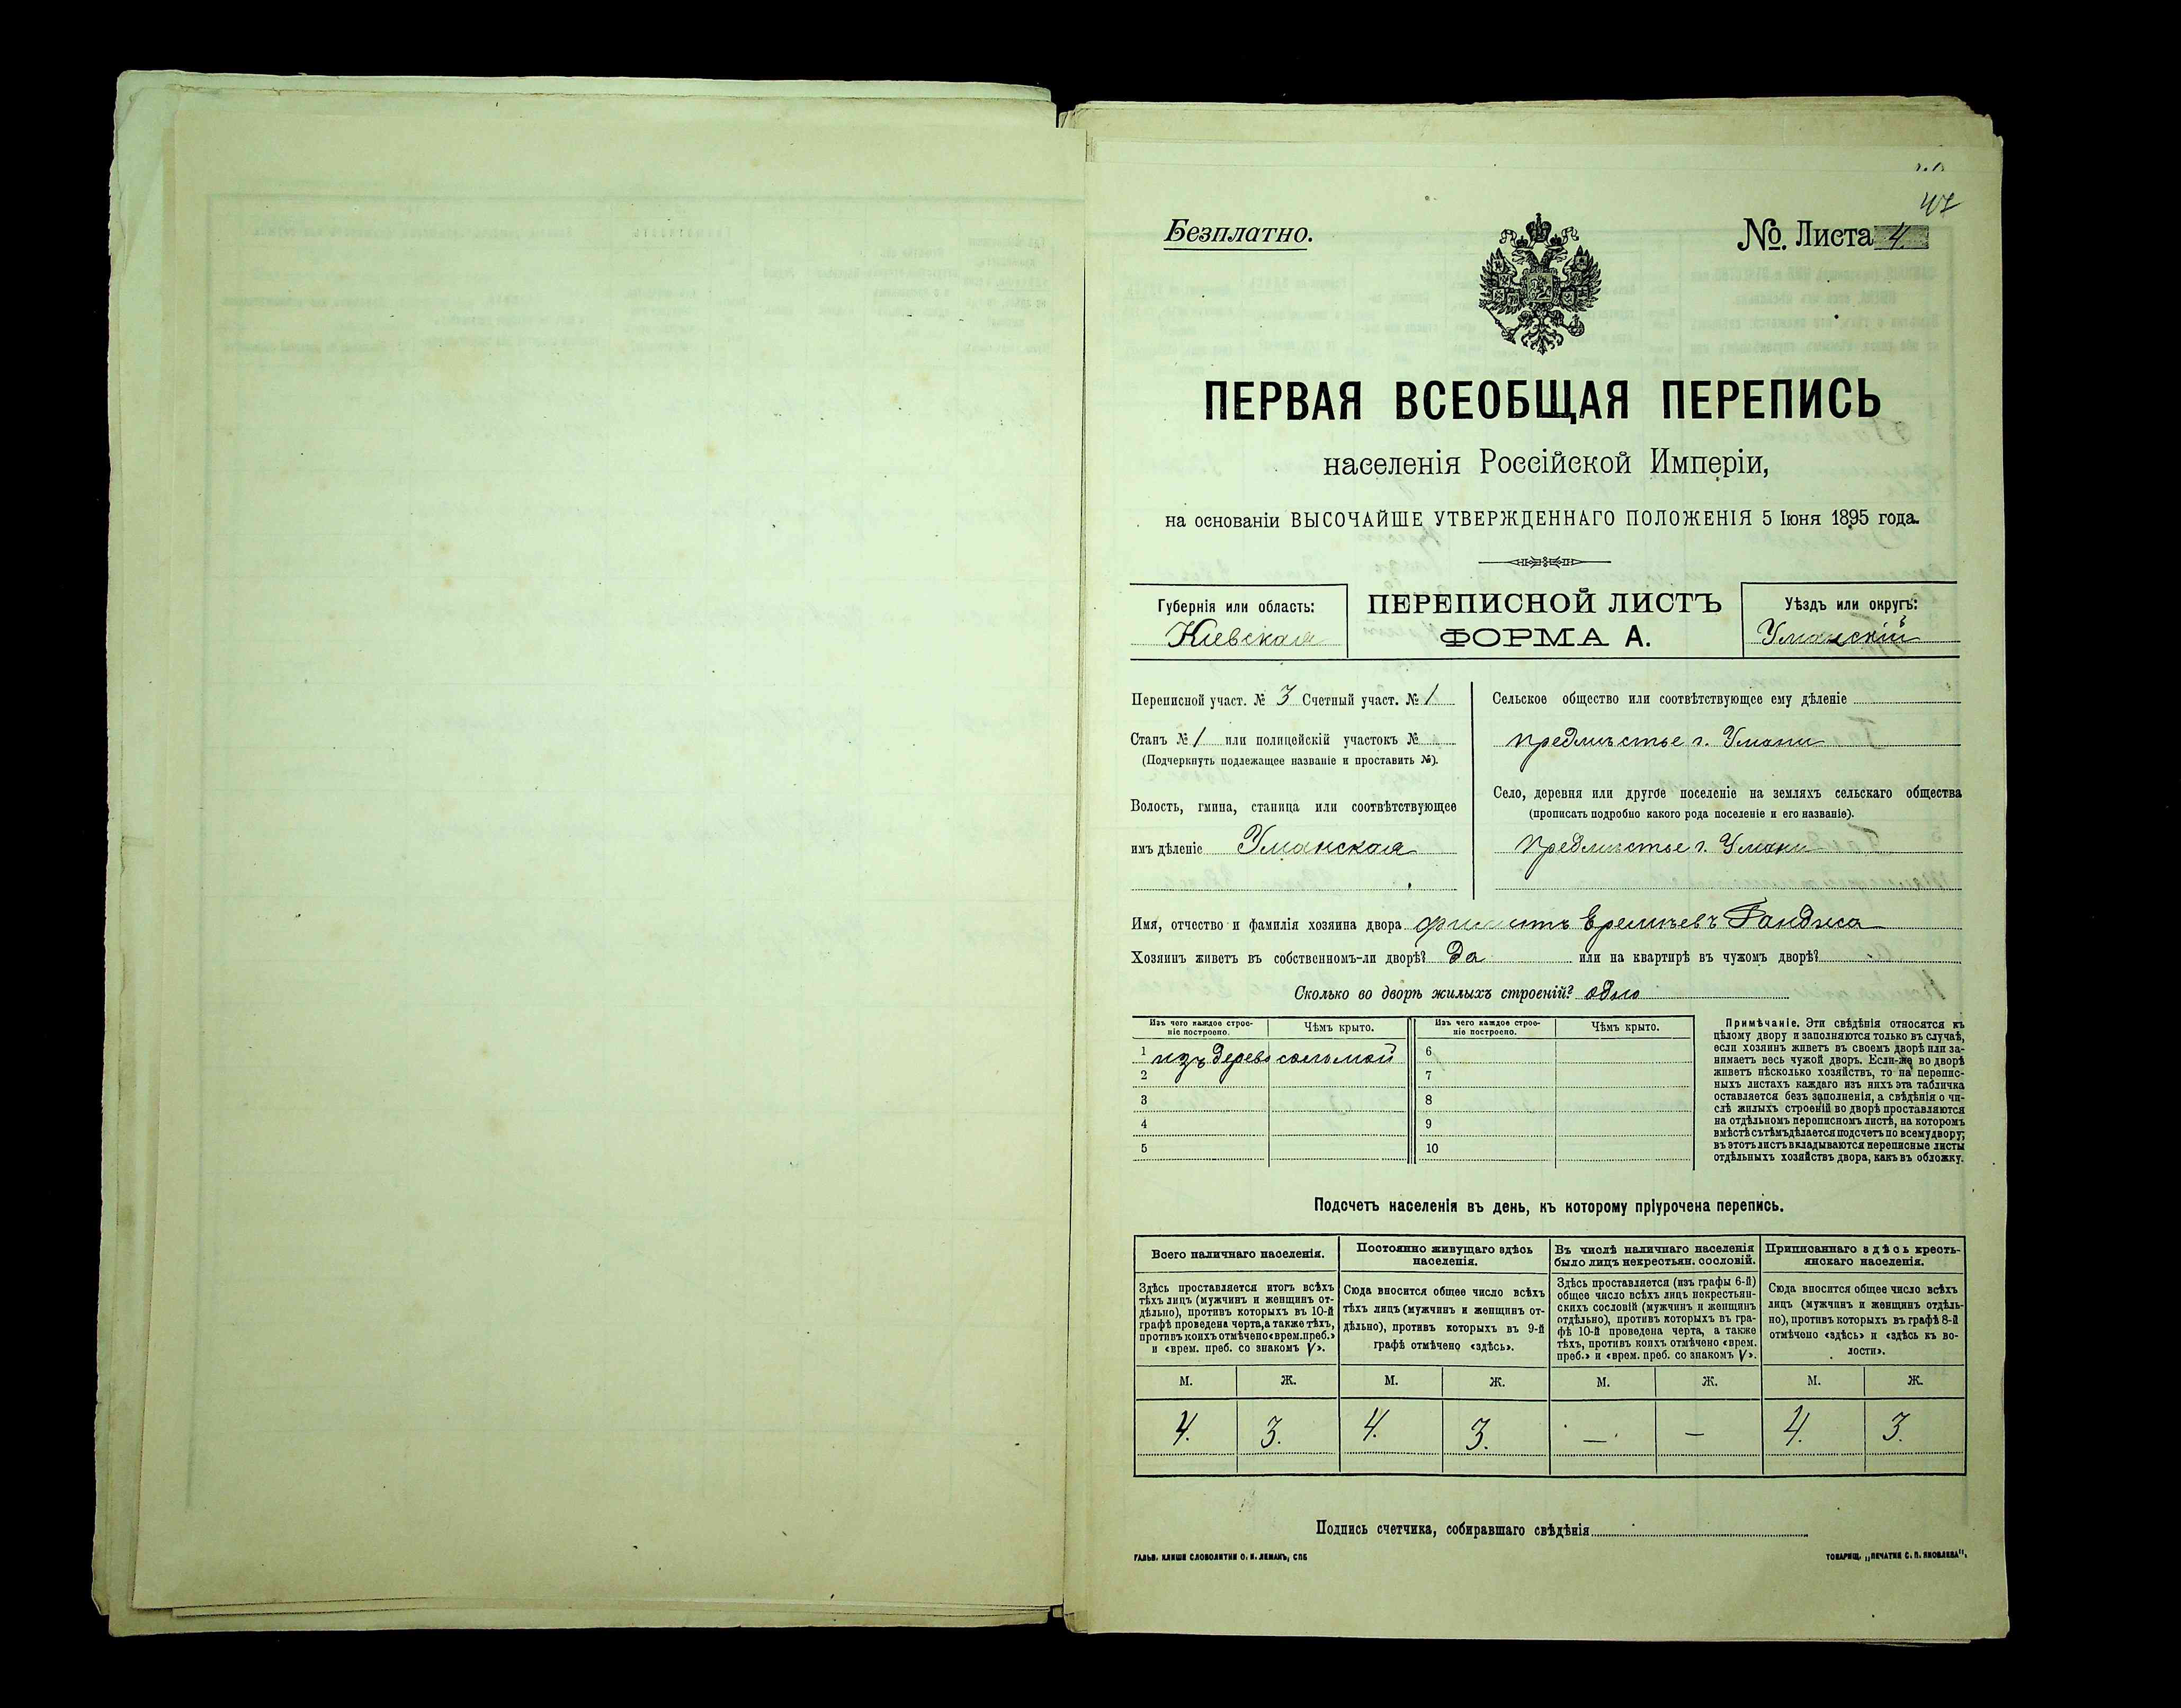 47
Безплатно.
№. Листа 4.
ПЕРВАЯ ВСЕОБЩАЯ ПЕРЕПИСЬ
населенія Россійской Имперіи,
на основаніи ВЫСОЧАЙШЕ УТВЕРЖДЕННАГО ПОЛОЖЕНІЯ 5 Іюня 1895 года.
Губернія или область:
Кіевская
ПЕРЕПИСНОЙ ЛИСТЪ
ФОРМА А.
Уѣздъ или округъ:
Уманскій
Переписной участ. № 3 Счетный участ. № 1
Станъ № 1 или полицейскій участокъ №
(Подчеркнуть подлежащее названіе и проставить №).
Волость, гмина, станица или соотвѣтствующее
имъ дѣленіе Уманская
Сельское общество или соотвѣтствующее ему дѣленіе
предмѣстье г. Умани
Село, деревня или другое поселеніе на земляхъ сельскаго общества
(прописать подробно какого рода поселеніе и его названіе).
Предмѣстье г. Умани
Имя, отчество и фамилія хозяина двора Еремѣевъ Ганджа
Хозяинъ живетъ въ собственномъ-ли дворѣ? да или на квартирѣ въ чужомъ дворѣ?
Сколько во дворѣ жилыхъ строеній? одно
Изъ чего каждое строе-
ніе построено.
Чѣмъ крыто.
Изъ чего каждое строе-
ніе построено.
Чѣмъ крыто.
1 изъ дерева соломой
2
3
4
5
6
7
8
9
10
Примѣчаніе. Эти свѣдѣнія относятся къ
цѣлому двору и заполняются только въ случаѣ,
если хозяинъ живетъ въ своемъ дворѣ или за-
нимаетъ весь чужой дворъ. Если-же во дворѣ
живетъ нѣсколько хозяйствъ, то на перепис-
ныхъ листахъ каждаго изъ нихъ эта табличка
оставляется безъ заполненія, а свѣдѣнія о чи-
слѣ жилыхъ строеній во дворѣ проставляются
на отдѣльномъ переписномъ листѣ, на которомъ
вмѣстѣ съ тѣмъ дѣлается подсчетъ по всему двору;
въ этотъ листъ вкладываются переписные листы
отдѣльныхъ хозяйствъ двора, какъ въ обложку.
Подсчетъ населенія въ день, къ которому пріурочена перепись.
Всего наличнаго населенія.
Здѣсь проставляется итогъ всѣхъ
тѣхъ лицъ (мужчинъ и женщинъ от-
дѣльно), противъ которыхъ въ 10-й
графѣ проведена черта, а также тѣхъ,
противъ коихъ отмѣчено «врем. преб.»
и «врем. преб. со знакомъ V».
Постоянно живущаго здѣсь
населенія.
Сюда вносится общее число всѣхъ
тѣхъ лицъ (мужчинъ и женщинъ от-
дѣльно), противъ которыхъ въ 9-й
графѣ отмѣчено «здѣсь».
Въ числѣ наличнаго населенія
было лицъ некрестьян. сословій.
Здѣсь проставляется (изъ графы 6-й)
общее число всѣхъ лицъ некрестьян-
скихъ сословій (мужчинъ и женщинъ
отдѣльно), противъ которыхъ въ гра-
фѣ 10-й проведена черта, а также
тѣхъ, противъ коихъ отмѣчено «врем.
преб.» и «врем. преб. со знакомъ V».
Приписаннаго здѣсь кресть-
янскаго населенія.
Сюда вносится общее число всѣхъ
лицъ (мужчинъ и женщинъ отдѣль-
но), противъ которыхъ въ графѣ 8-й
отмѣчено «здѣсь» и «здѣсь къ во-
лости».
М. Ж. М. Ж. М. Ж. М. Ж.
4. 3. 4. 3. — — 4. 3.
Подпись счетчика, собиравшаго свѣдѣнія
ГАЛЬВ. КЛИШЕ СЛОВОЛИТНИ О. И. ЛЕМАНЪ, СПБ
ТОВАРИЩ. „ПЕЧАТНЯ С. П. ЯКОВЛЕВА".